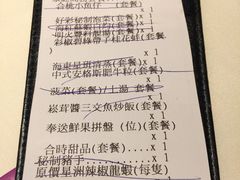 合桃小魚仔 (套餐)
x 1
好彩秘制泡菜(套餐)
x 1
(套餐)
明火
彩椒碧綠帶子桂花蚌(套餐)
x 1
海東星斑清蒸(套餐)
x 1
中式安格斯肥牛粒(套餐)
x 1
菠菜(套餐)/上湯 套餐
x 1
崧茸醬三文魚炒飯(套餐)
x 1
奉送鮮果拼盤 (位)(套餐)
x 1
合時甜品(套餐)
x 1
秘制豬手
x 1
原價星洲辣椒龍蝦(每隻)
x 1